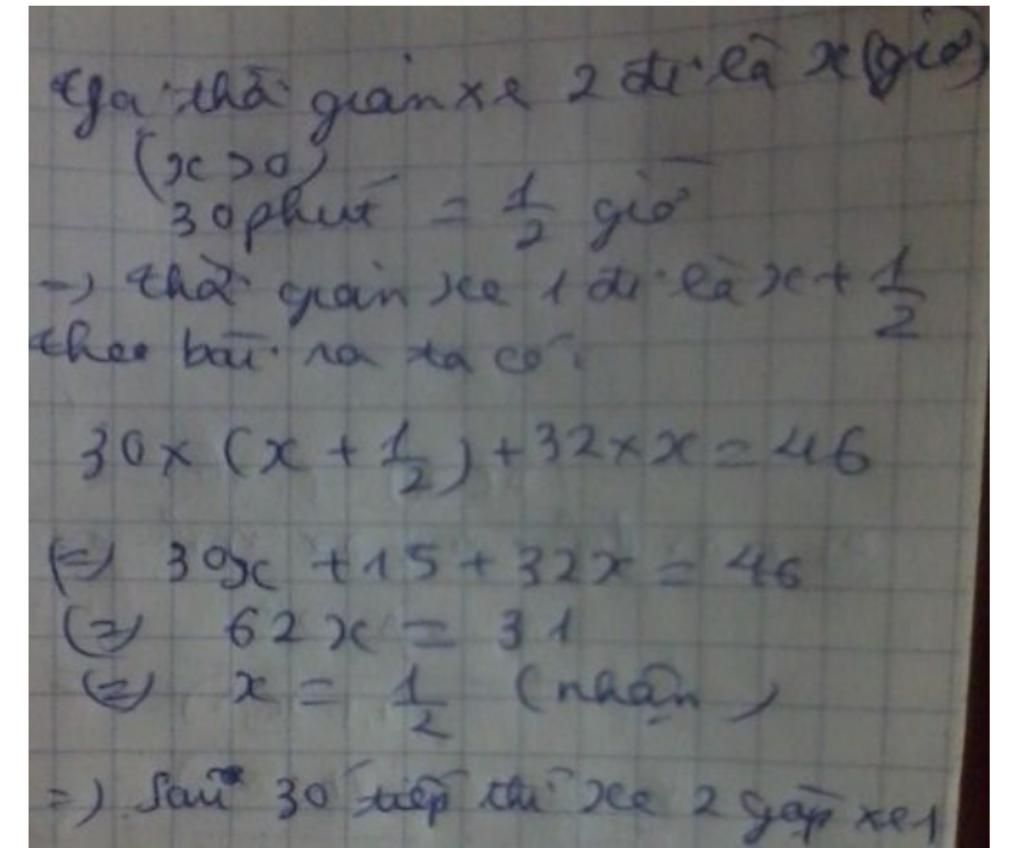 Gọi thời gian xe 2 đi là x (giờ)
(x > 0)
30 phút = 1/2 giờ
=) thời gian xe 1 đi là x + 1/2
theo bài ra ta có:
30 × (x + 1/2) + 32 × x = 46
(=) 30x + 15 + 32x = 46
(=) 62x = 31
(=) x = 1/2 (nhận)
=) Sau 30 thì xe 2 gặp xe 1